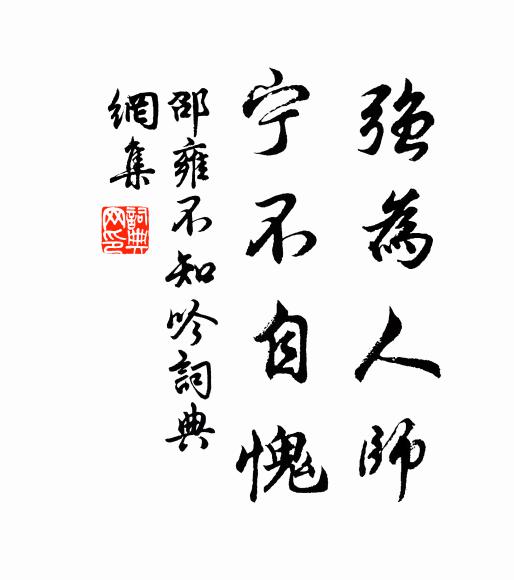 強為人師
宁不自愧
邵雍不知吟詞典
網集
詞典
网印